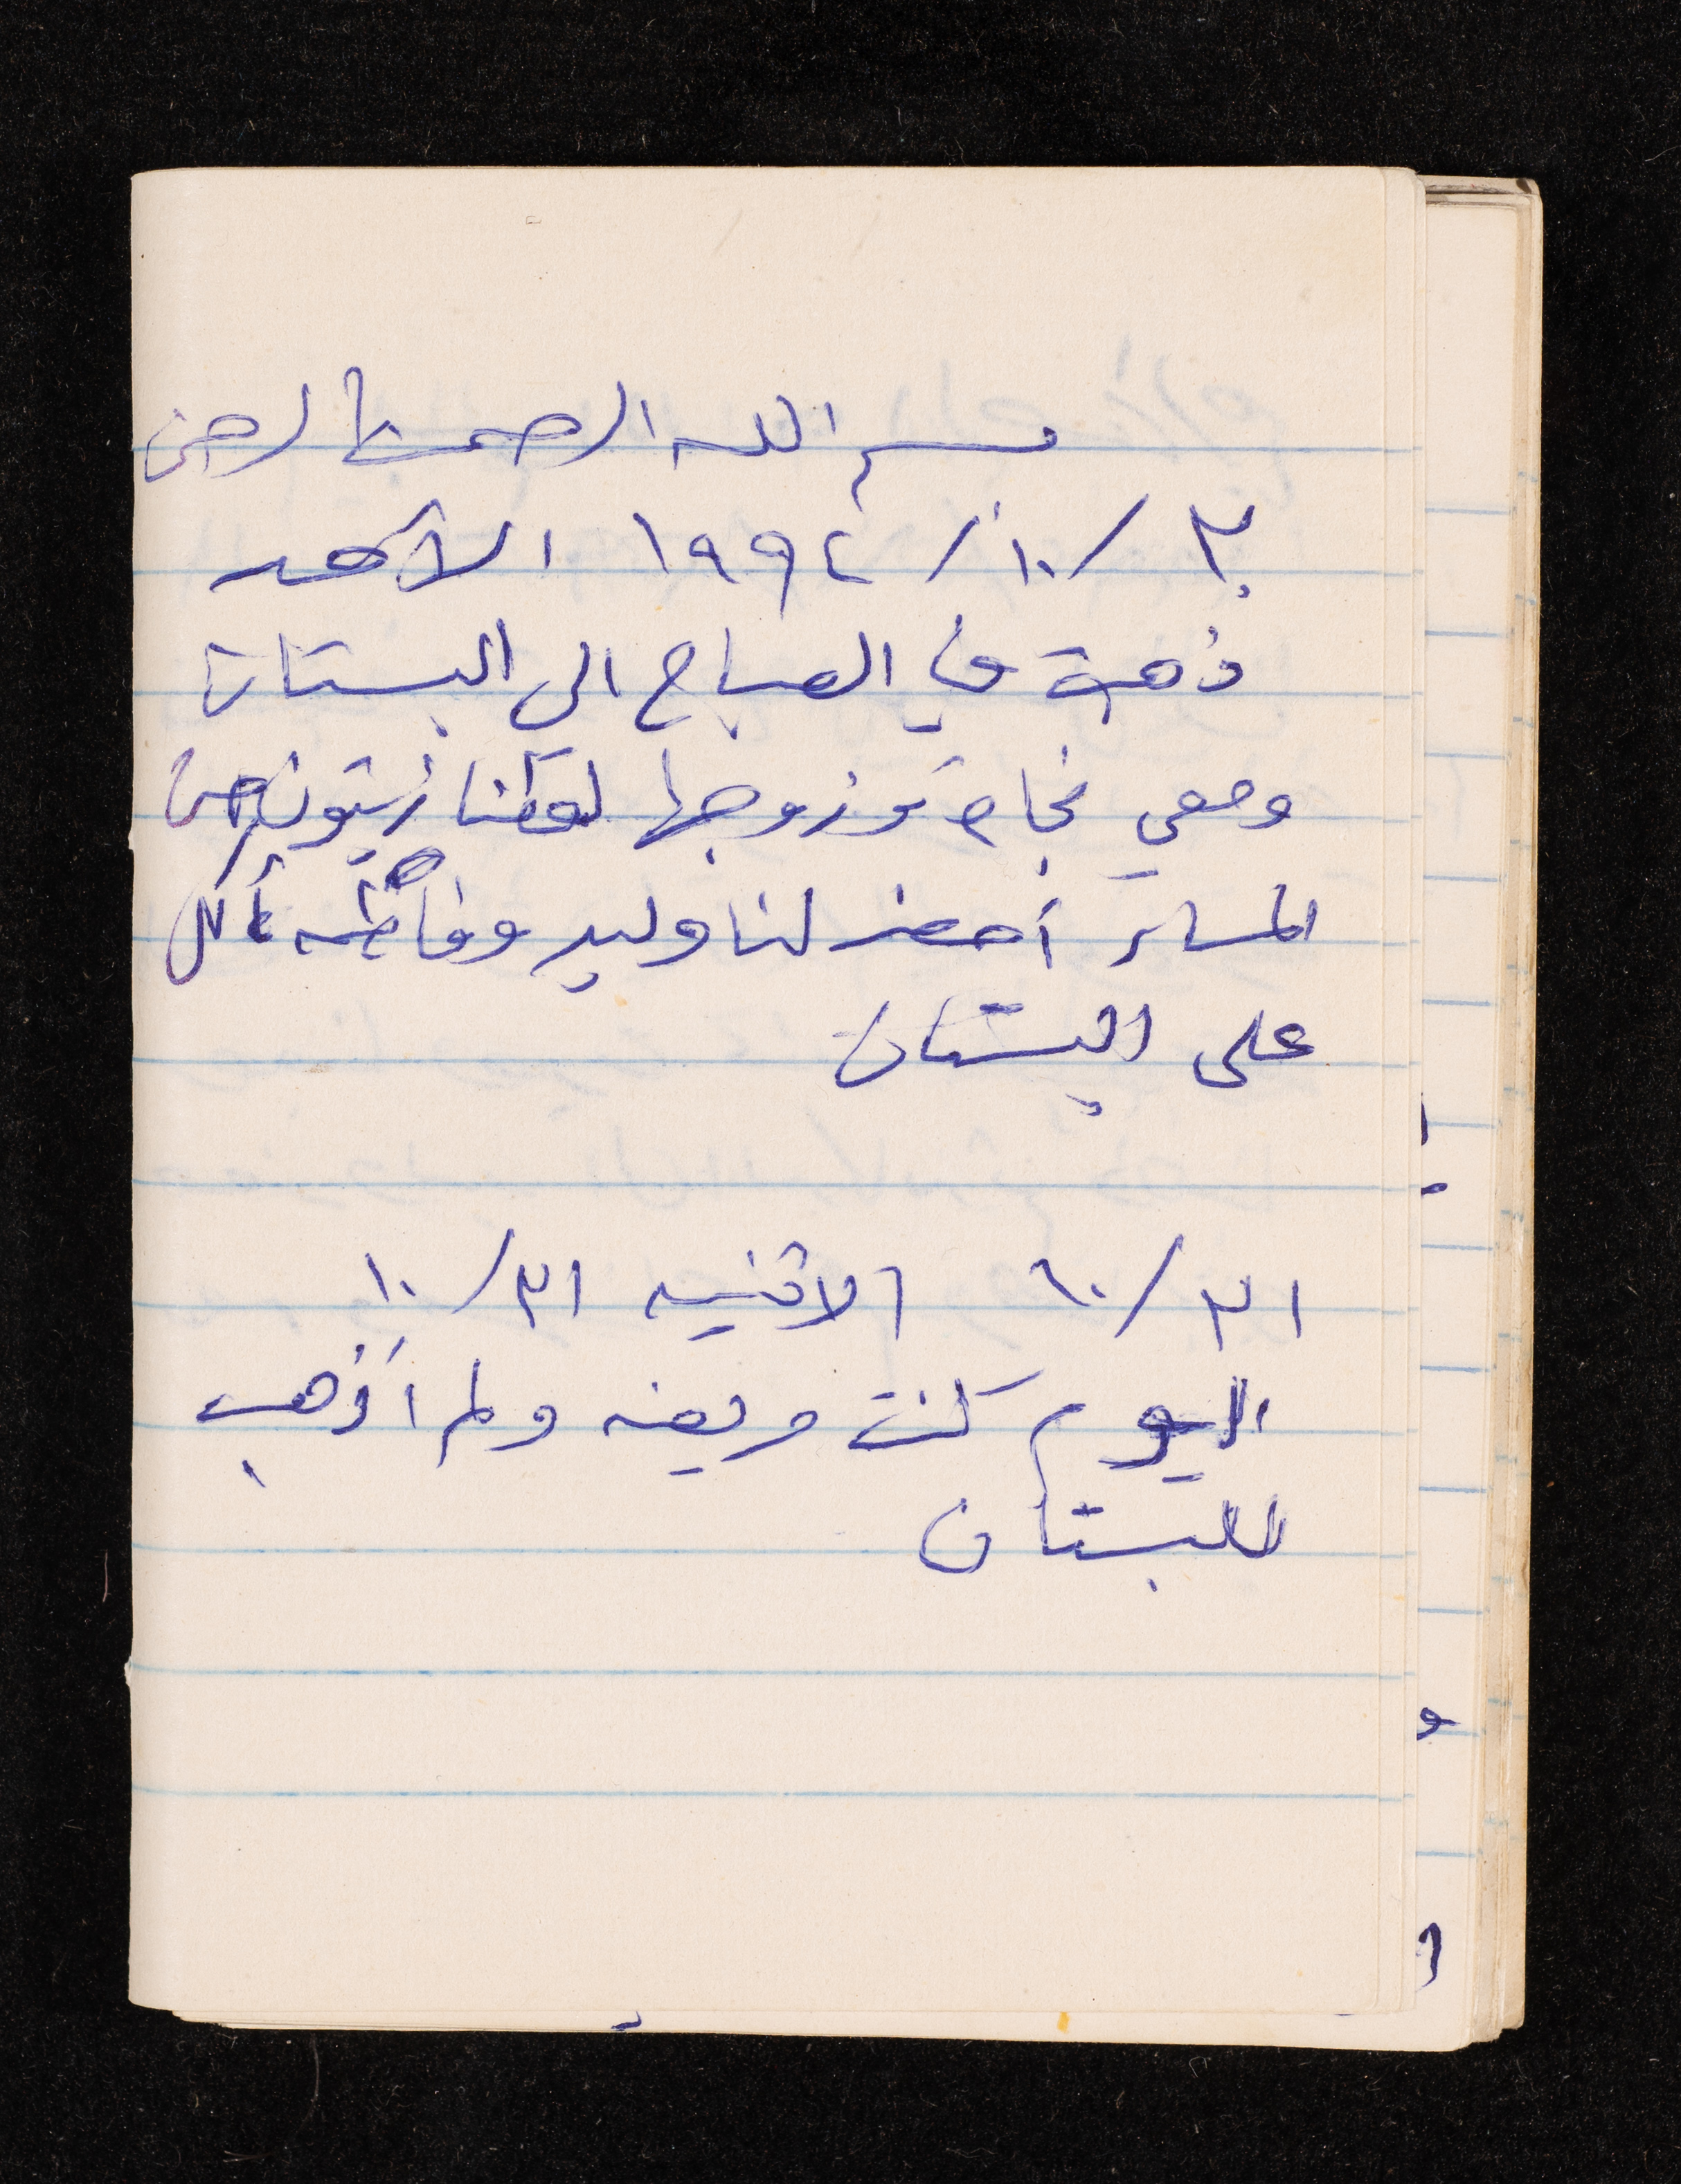 بسم الله الرحمن الرحيم
٣٠/١٠/١٩٩٤ الأحد
ذهبت في الصباح الى البستان
ومعي نجاة وزوجها لقطنا زيتون حتى
المساء أحضر لنا وليد وفاطمه الأكل
على البستان
٣١/١٠ الاثنين ٣١/١٠
اليوم كنت مريضه ولم أذهب
للبستان